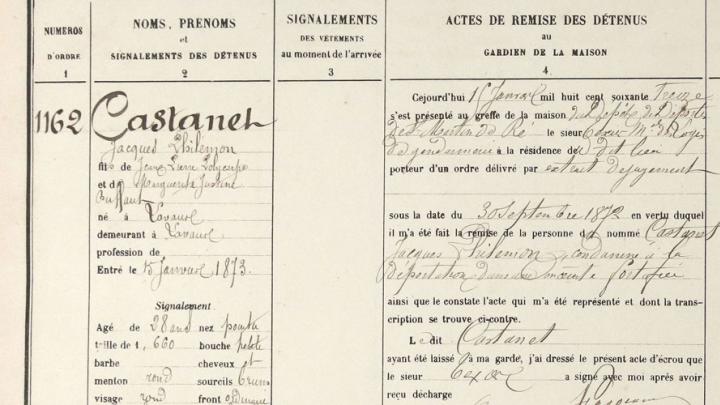 NUMEROS
D'ORDRE
1
NOMS, PRENOMS
et
SIGNALEMENTS DES DÉTENUS
2
SIGNALEMENTS
DES VÊTEMENTS
au moment de l'arrivée
3
ACTES DE REMISE DES DÉTENUS
au
GARDIEN DE LA MAISON
4
1162
Castanet
Jacques Philémon
fils de Jean Pierre Polycarpe
et de Marguerite Justine
né à Lavaur
demeurant à Lavaur
profession de
Entré le 15 Janvier 1873.
Signalement
Agé de 28 ans nez pointu
taille de 1, 660 bouche petite
barbe cheveux et
menton rond sourcils bruns
visage rond front ordinaire
Cejourd'hui 15 Janvier mil huit cent soixante treize
s'est présenté au greffe de la maison du Dépôt des Déportés
de St Martin de Ré le sieur Mal des Logis
de gendarmerie à la résidence de dit lieu
porteur d'un ordre délivré par extrait de jugement
sous la date du 30 septembre 1872 en vertu duquel
il m'a été fait la remise de la personne du nommé Castanet
Jacques Philémon condamné à la
déportation dans une enceinte fortifiée
ainsi que le constate l'acte qui m'a été représenté et dont la trans-
cription se trouve ci-contre.
Ledit Castanet
ayant été laissé à ma garde, j'ai dressé le présent acte d'écrou que
le sieur a signé avec moi après avoir
reçu décharge